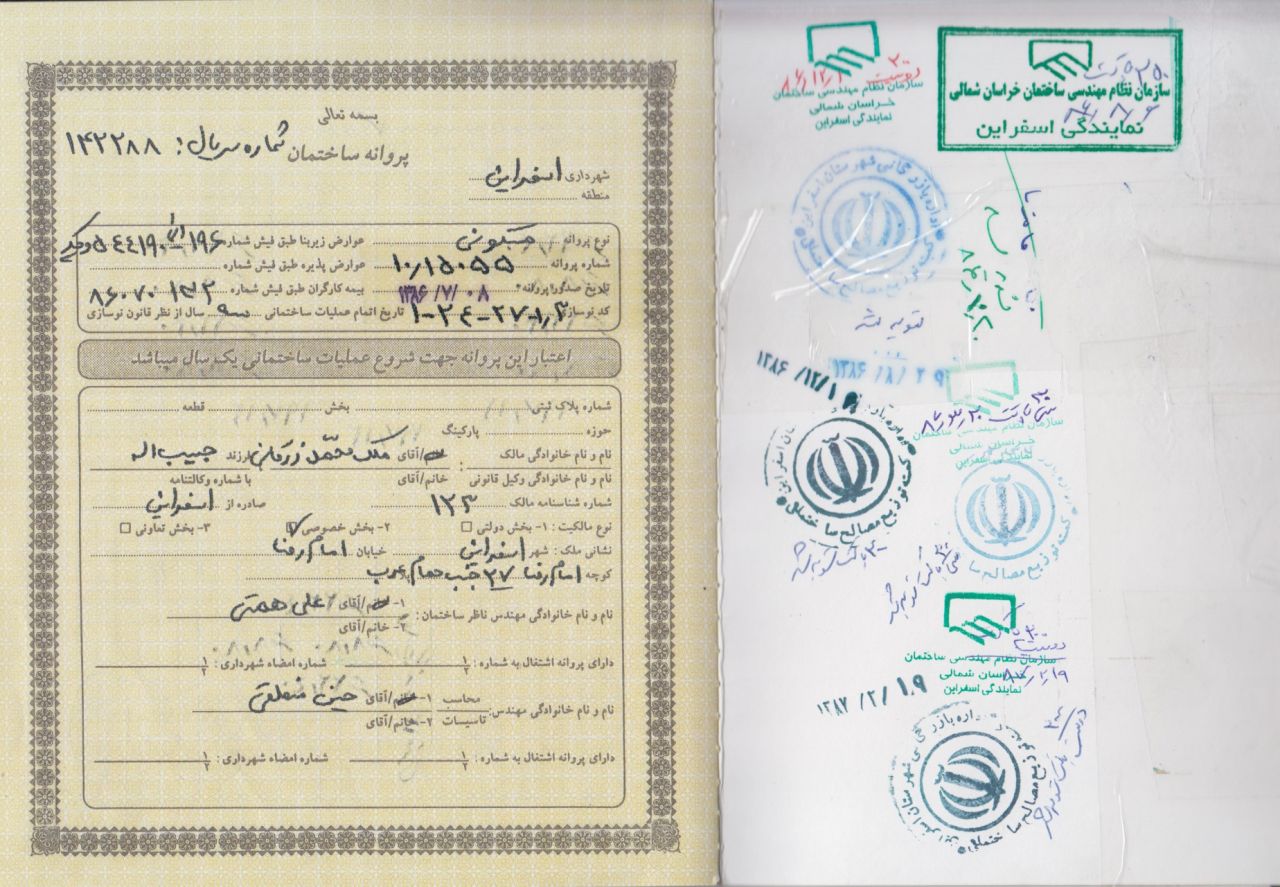 بسمه تعالی
پروانه ساختمان شماره سریال: ۱۴۲۲۸۸
شهرداری اسفراین
منطقه
نوع پروانه مسکونی عوارض زیربنا طبق فیش شماره
شماره پروانه ۱۰٫۱۵۰۵۵ عوارض پذیره طبق فیش شماره
تاریخ صدور پروانه ۱۳۸۶/۷/۰۸ بیمه کارگران طبق فیش شماره ۸۶۰۷۰۱۳۲
کد نوسازی تاریخ اتمام عملیات ساختمانی سه سال از نظر قانون نوسازی
اعتبار این پروانه جهت شروع عملیات ساختمانی یک سال میباشد
شماره پلاک ثبتی بخش قطعه
حوزه پارکینگ
نام و نام خانوادگی مالک خانم/آقای ملک محمد فرزند حبیب اله
نام و نام خانوادگی وکیل قانونی خانم/آقای با شماره وکالتنامه
شماره شناسنامه مالک ۱۲۳ صادره از اسفراین
نوع مالکیت : ۱- بخش دولتی ۲- بخش خصوصی ۳- بخش تعاونی
نشانی ملک : شهر اسفراین خیابان امام رضا
کوچه امام رضا ۳۷ جنب حمام عرب
نام و نام خانوادگی مهندس ناظر ساختمان : ۱- خانم/آقای علی همتی
۲- خانم/آقای
دارای پروانه اشتغال به شماره : ۱ ۲ شماره امضاء شهرداری : ۱ ۲
نام و نام خانوادگی مهندس: محاسب ۱- خانم/آقای
تاسیسات ۲- خانم/آقای
دارای پروانه اشتغال به شماره : ۱ ۲ شماره امضاء شهرداری : ۱ ۲
سازمان نظام مهندسی ساختمان خراسان شمالی
نمایندگی اسفراین
سازمان نظام مهندسی ساختمان
خراسان شمالی
نمایندگی اسفراین
اداره بازرگانی شهرستان اسفراین
کمیته توزیع مصالح ساختمانی
تسویه شد
۱۳۸۶/۸/۲۹
۱۳۸۶/۱۲/۱
کمیته توزیع مصالح ساختمانی
سازمان نظام مهندسی ساختمان
خراسان شمالی
نمایندگی اسفراین
کمیته توزیع مصالح سا
سازمان نظام مهندسی ساختمان
خراسان شمالی
نمایندگی اسفراین
۱۳۸۷/۲/۱۹
اداره بازرگانی شهرستان اسفراین
توزیع مصالح ساختمانی